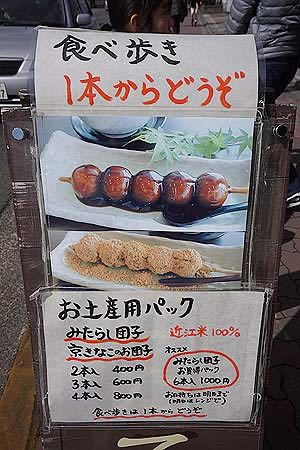 食べ歩き
1本からどうぞ
お土産用パック
みたらし団子
京きなこのお団子
2本入 400円
3本入 600円
4本入 800円
近江米100%
オススメ
みたらし団子
お買得パック
6本入 1000円
お日持ちは明日まで
(明日はレンジで)
食べ歩きは1本からどうぞ